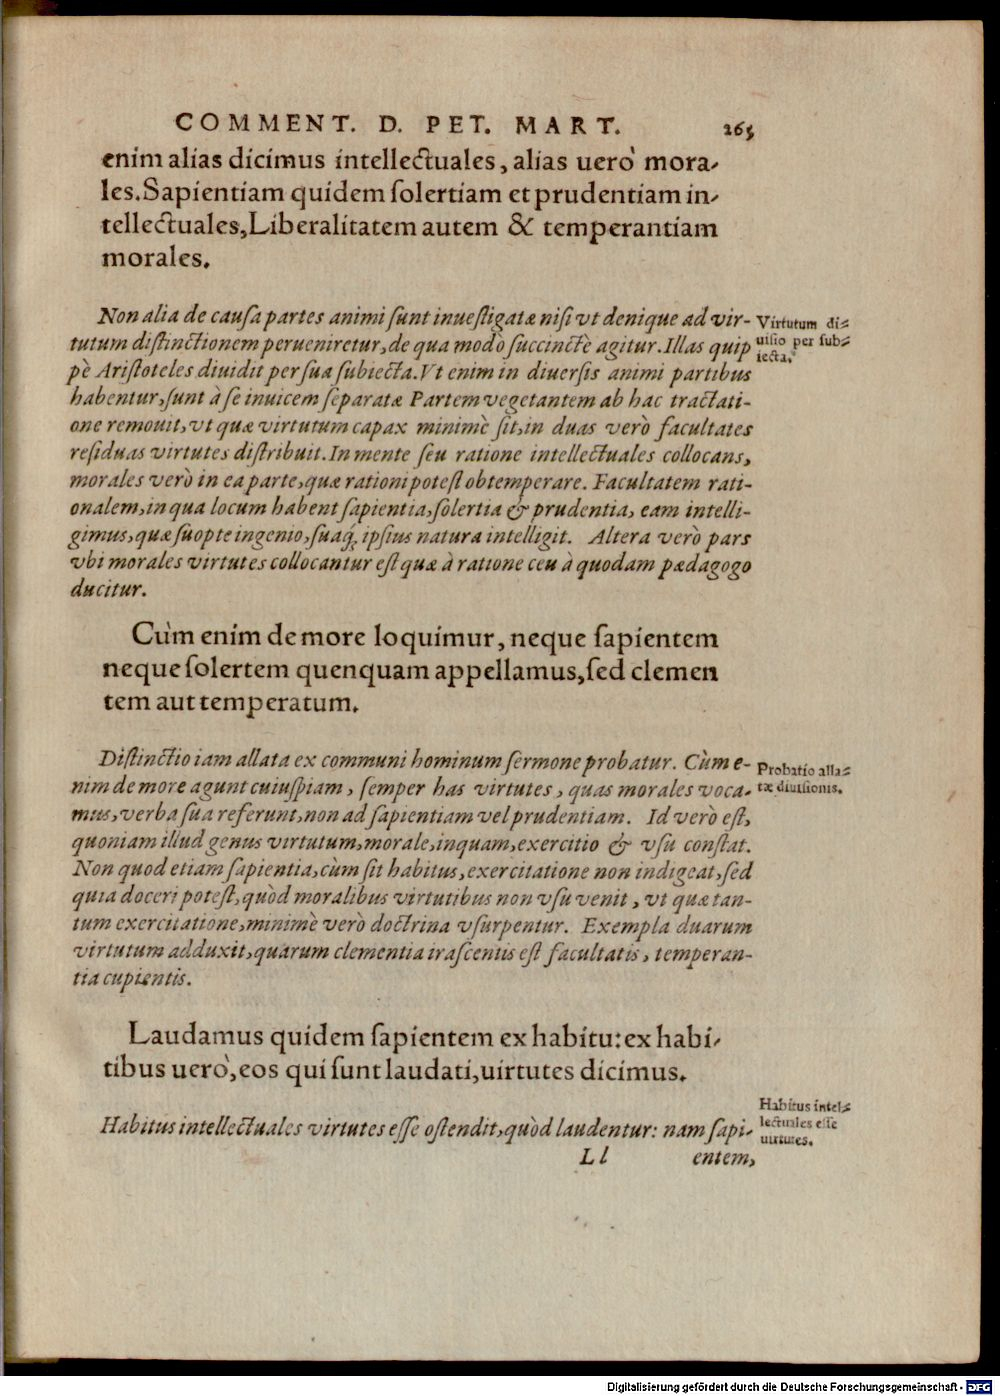 COMMENT. D. PET. MART. 265
enim alias dicimus intellectuales, alias uerò mora-
les. Sapientiam quidem solertiam et prudentiam in-
tellectuales, Liberalitatem autem & temperantiam
morales.
Non alia de causa partes animi sunt inuestigatæ nisi vt denique ad vir-
tutum distinctionem perueniretur, de qua modò succinctè agitur. Illas quip
pè Aristoteles diuidit per sua subiecta. Vt enim in diuersis animi partibus
habentur, sunt à se inuicem separatæ Partem vegetantem ab hac tractati-
one remouit, vt quæ virtutum capax minimè sit, in duas verò facultates
residuas virtutes distribuit. In mente seu ratione intellectuales collocans,
morales verò in ea parte, quæ rationi potest obtemperare. Facultatem rati-
onalem, in qua locum habent sapientia, solertia & prudentia, eam intelli-
gimus, quæ suopte ingenio, suaq; ipsius natura intelligit. Altera verò pars
vbi morales virtutes collocantur est quæ à ratione ceu à quodam pædagogo
ducitur.
Virtutum di-
uisio per sub-
iecta.
Cùm enim de more loquimur, neque sapientem
neque solertem quenquam appellamus, sed clemen
tem aut temperatum.
Distinctio iam allata ex communi hominum sermone probatur. Cùm e-
nim de more agunt cuiuspiam, semper has virtutes, quas morales voca-
mus, verba sua referunt, non ad sapientiam vel prudentiam. Id verò est,
quoniam illud genus virtutum, morale, inquam, exercitio & vsu constat.
Non quod etiam sapientia, cùm sit habitus, exercitatione non indigeat, sed
quia doceri potest, quòd moralibus virtutibus non vsu venit, vt quæ tan-
tum exercitatione, minimè verò doctrina vsurpentur. Exempla duarum
virtutum adduxit, quarum clementia irascentis est facultatis, temperan-
tia cupientis.
Probatio alla-
tæ diuisionis.
Laudamus quidem sapientem ex habitu: ex habi-
tibus uerò, eos qui sunt laudati, uirtutes dicimus.
Habitus intellectuales virtutes esse ostendit, quòd laudentur: nam sapi-
Habitus intel-
lectuales esse
uirtutes.
Ll entem,
Digitalisierung gefördert durch die Deutsche Forschungsgemeinschaft - DFG